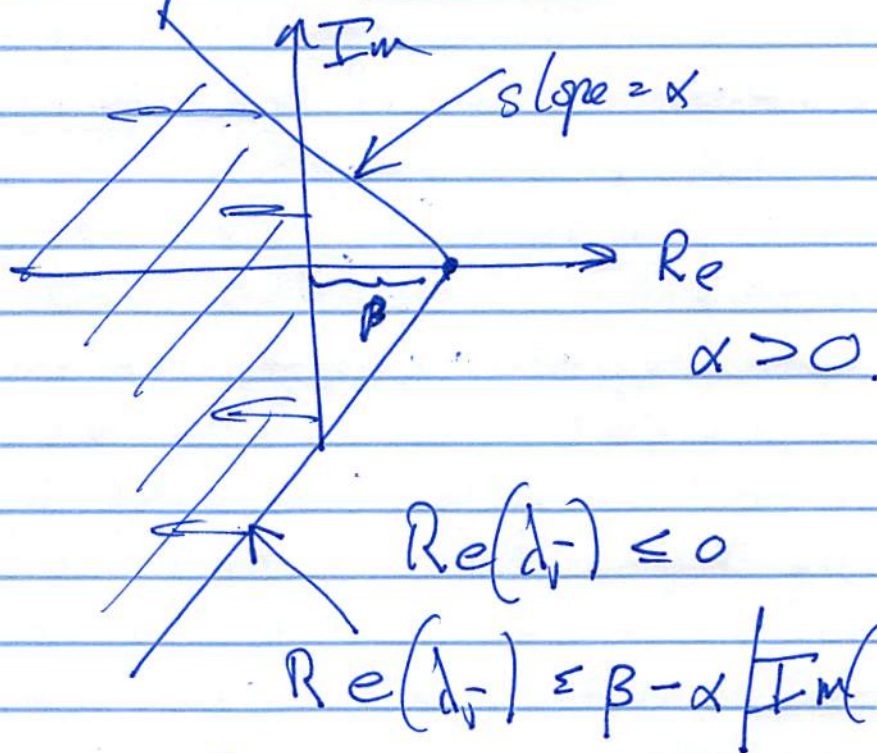 Im
slope = α
Re
β
α > 0.
Re(λᵢ) ≤ 0
Re(λᵢ) ≤ β - α |Im(